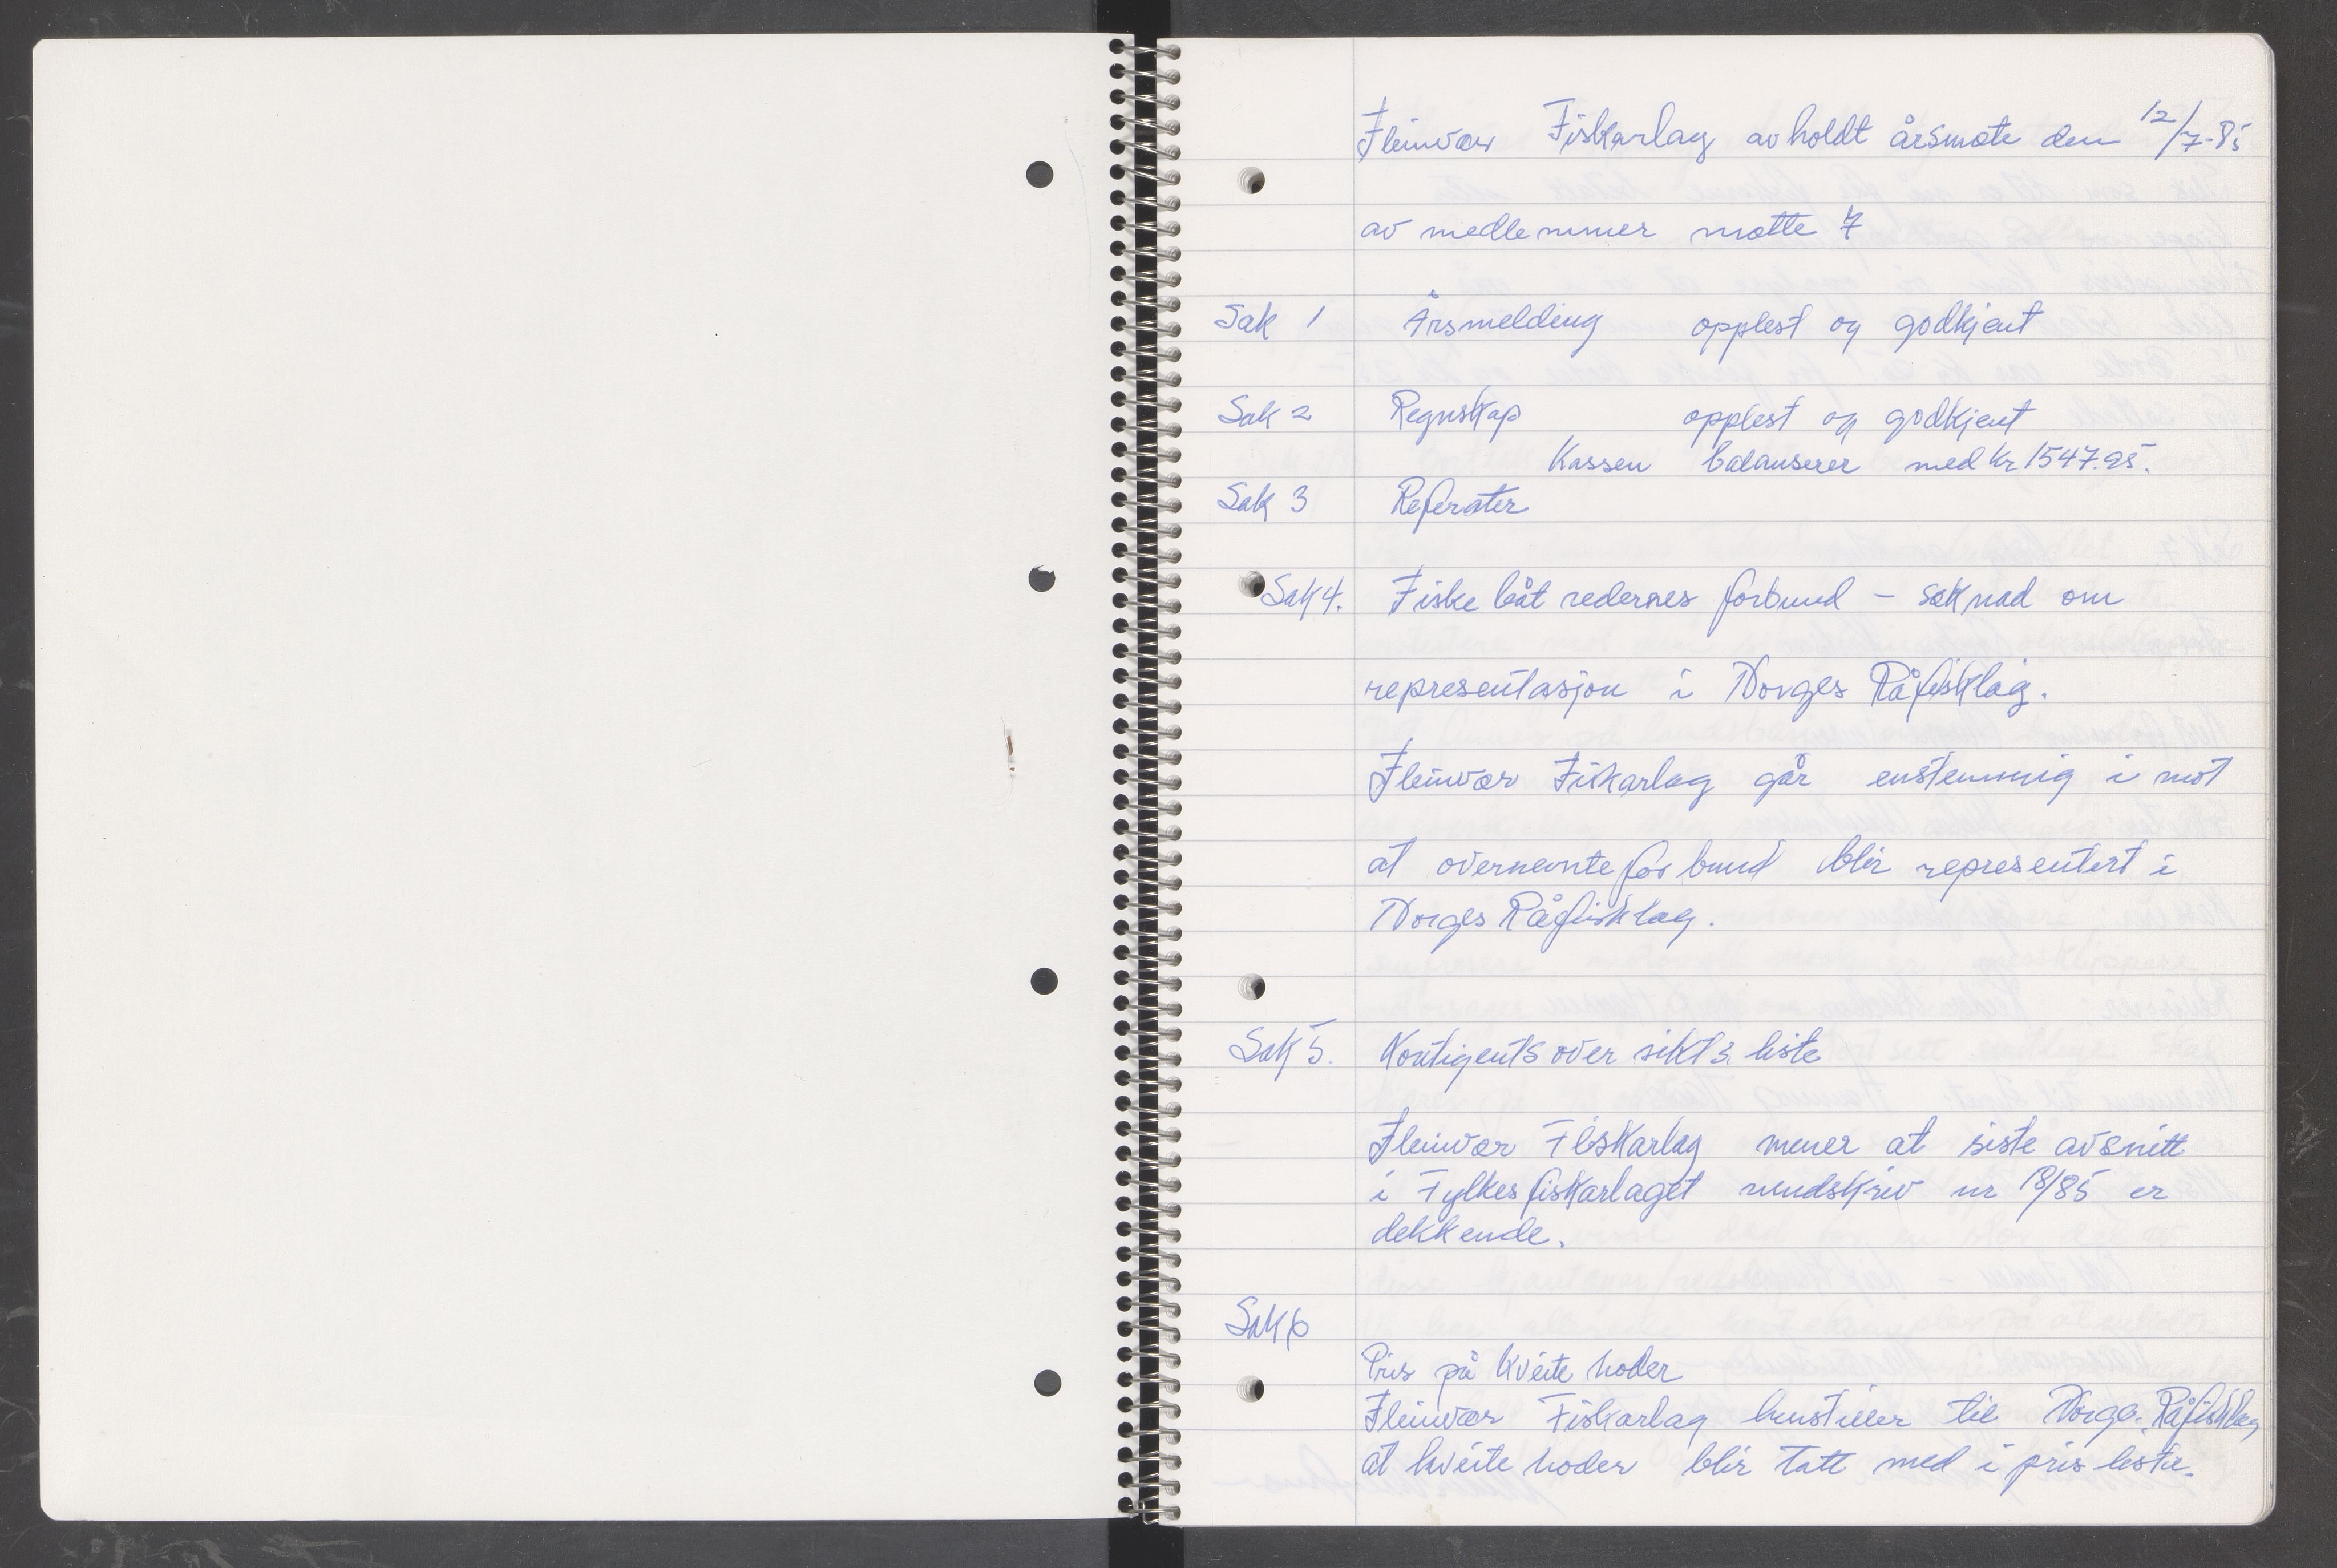 Fleinvær Fiskarlag avholdt årsmøte den 12/7-85
av medlemmer møtte 7
Sak 1 Årsmelding opplest og godkjent
Sak 2 Regnskap opplest og godkjent
Kassen balanserer med kr 1547.95.
Sak 3 Referater
Sak 4. Fiske båt redernes forbund - søknad om
representasjon i Norges Råfisklag.
Fleinvær Fiskarlag går enstemmig i mot
at overnevnte forbund blir representert i
Norges Råfisklag.
Sak 5. Kontigents over sikts liste
Fleinvær Fiskarlag mener at siste avsnitt
i Fylkesfiskarlaget rundskriv nr 18/85 er
dekkende.
Sak 6
Pris på kveite hoder
Fleinvær Fiskarlag henstiller til Norges Råfisklag
at kveite hoder blir tatt med i pris liste.